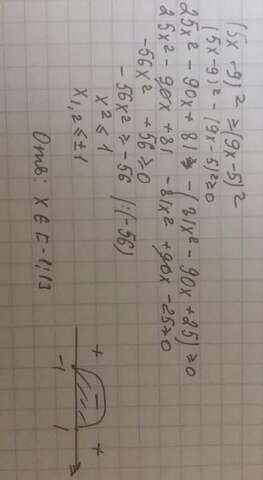 (5x-9)² ≥ (9x-5)²
(5x-9)² - (9x-5)² ≥ 0
25x² - 90x + 81 - (81x² - 90x + 25) ≥ 0
25x² - 90x + 81 - 81x² + 90x - 25 ≥ 0
-56x² + 56 ≥ 0
-56x² ≥ -56 |:(-56)
x² ≤ 1
x₁,₂ ≤ ±1
+ - +
-1 1
Отв: x ∈ [-1;1]